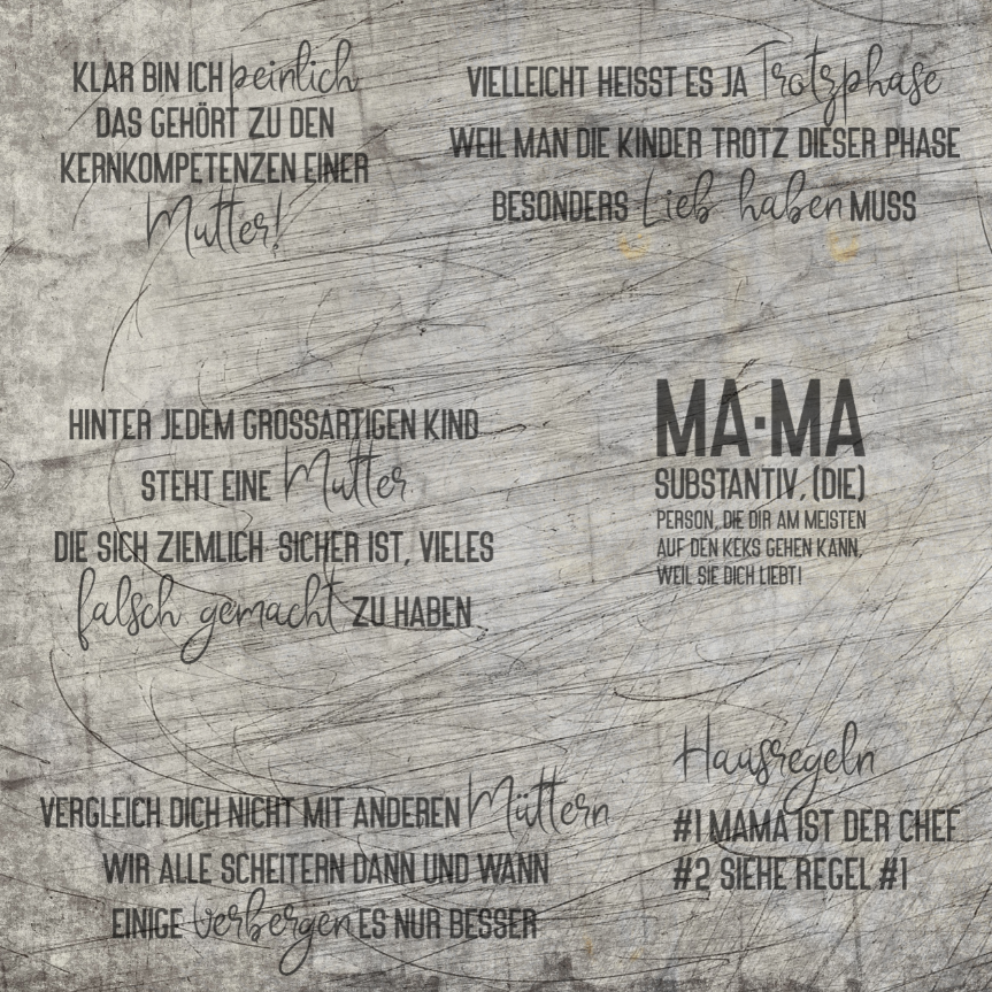 KLAR BIN ICH peinlich
DAS GEHÖRT ZU DEN
KERNKOMPETENZEN EINER
Mutter!
VIELLEICHT HEISST ES JA Trotzphase
WEIL MAN DIE KINDER TROTZ DIESER PHASE
BESONDERS Lieb haben MUSS
HINTER JEDEM GROSSARTIGEN KIND
STEHT EINE Mutter
DIE SICH ZIEMLICH SICHER IST, VIELES
falsch gemacht ZU HABEN
MA·MA
SUBSTANTIV, (DIE)
PERSON, DIE DIR AM MEISTEN
AUF DEN KEKS GEHEN KANN,
WEIL SIE DICH LIEBT!
VERGLEICH DICH NICHT MIT ANDEREN Müttern
WIR ALLE SCHEITERN DANN UND WANN
EINIGE verbergen ES NUR BESSER
Hausregeln
#1 MAMA IST DER CHEF
#2 SIEHE REGEL #1